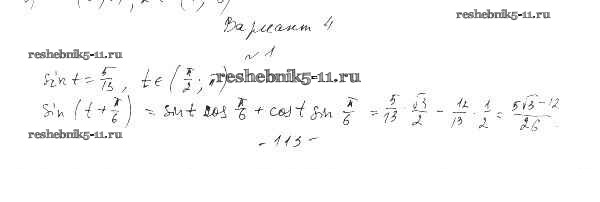 reshebnik5-11.ru
Вариант 4
№1
reshebnik5-11.ru
sin t = 5/13, t ∈ (π/2; π) reshebnik5-11.ru
sin (t + π/6) = sin t cos π/6 + cos t sin π/6 = 5/13 · √3/2 - 12/13 · 1/2 = (5√3 - 12)/26
reshebnik5-11.ru
- 113 -